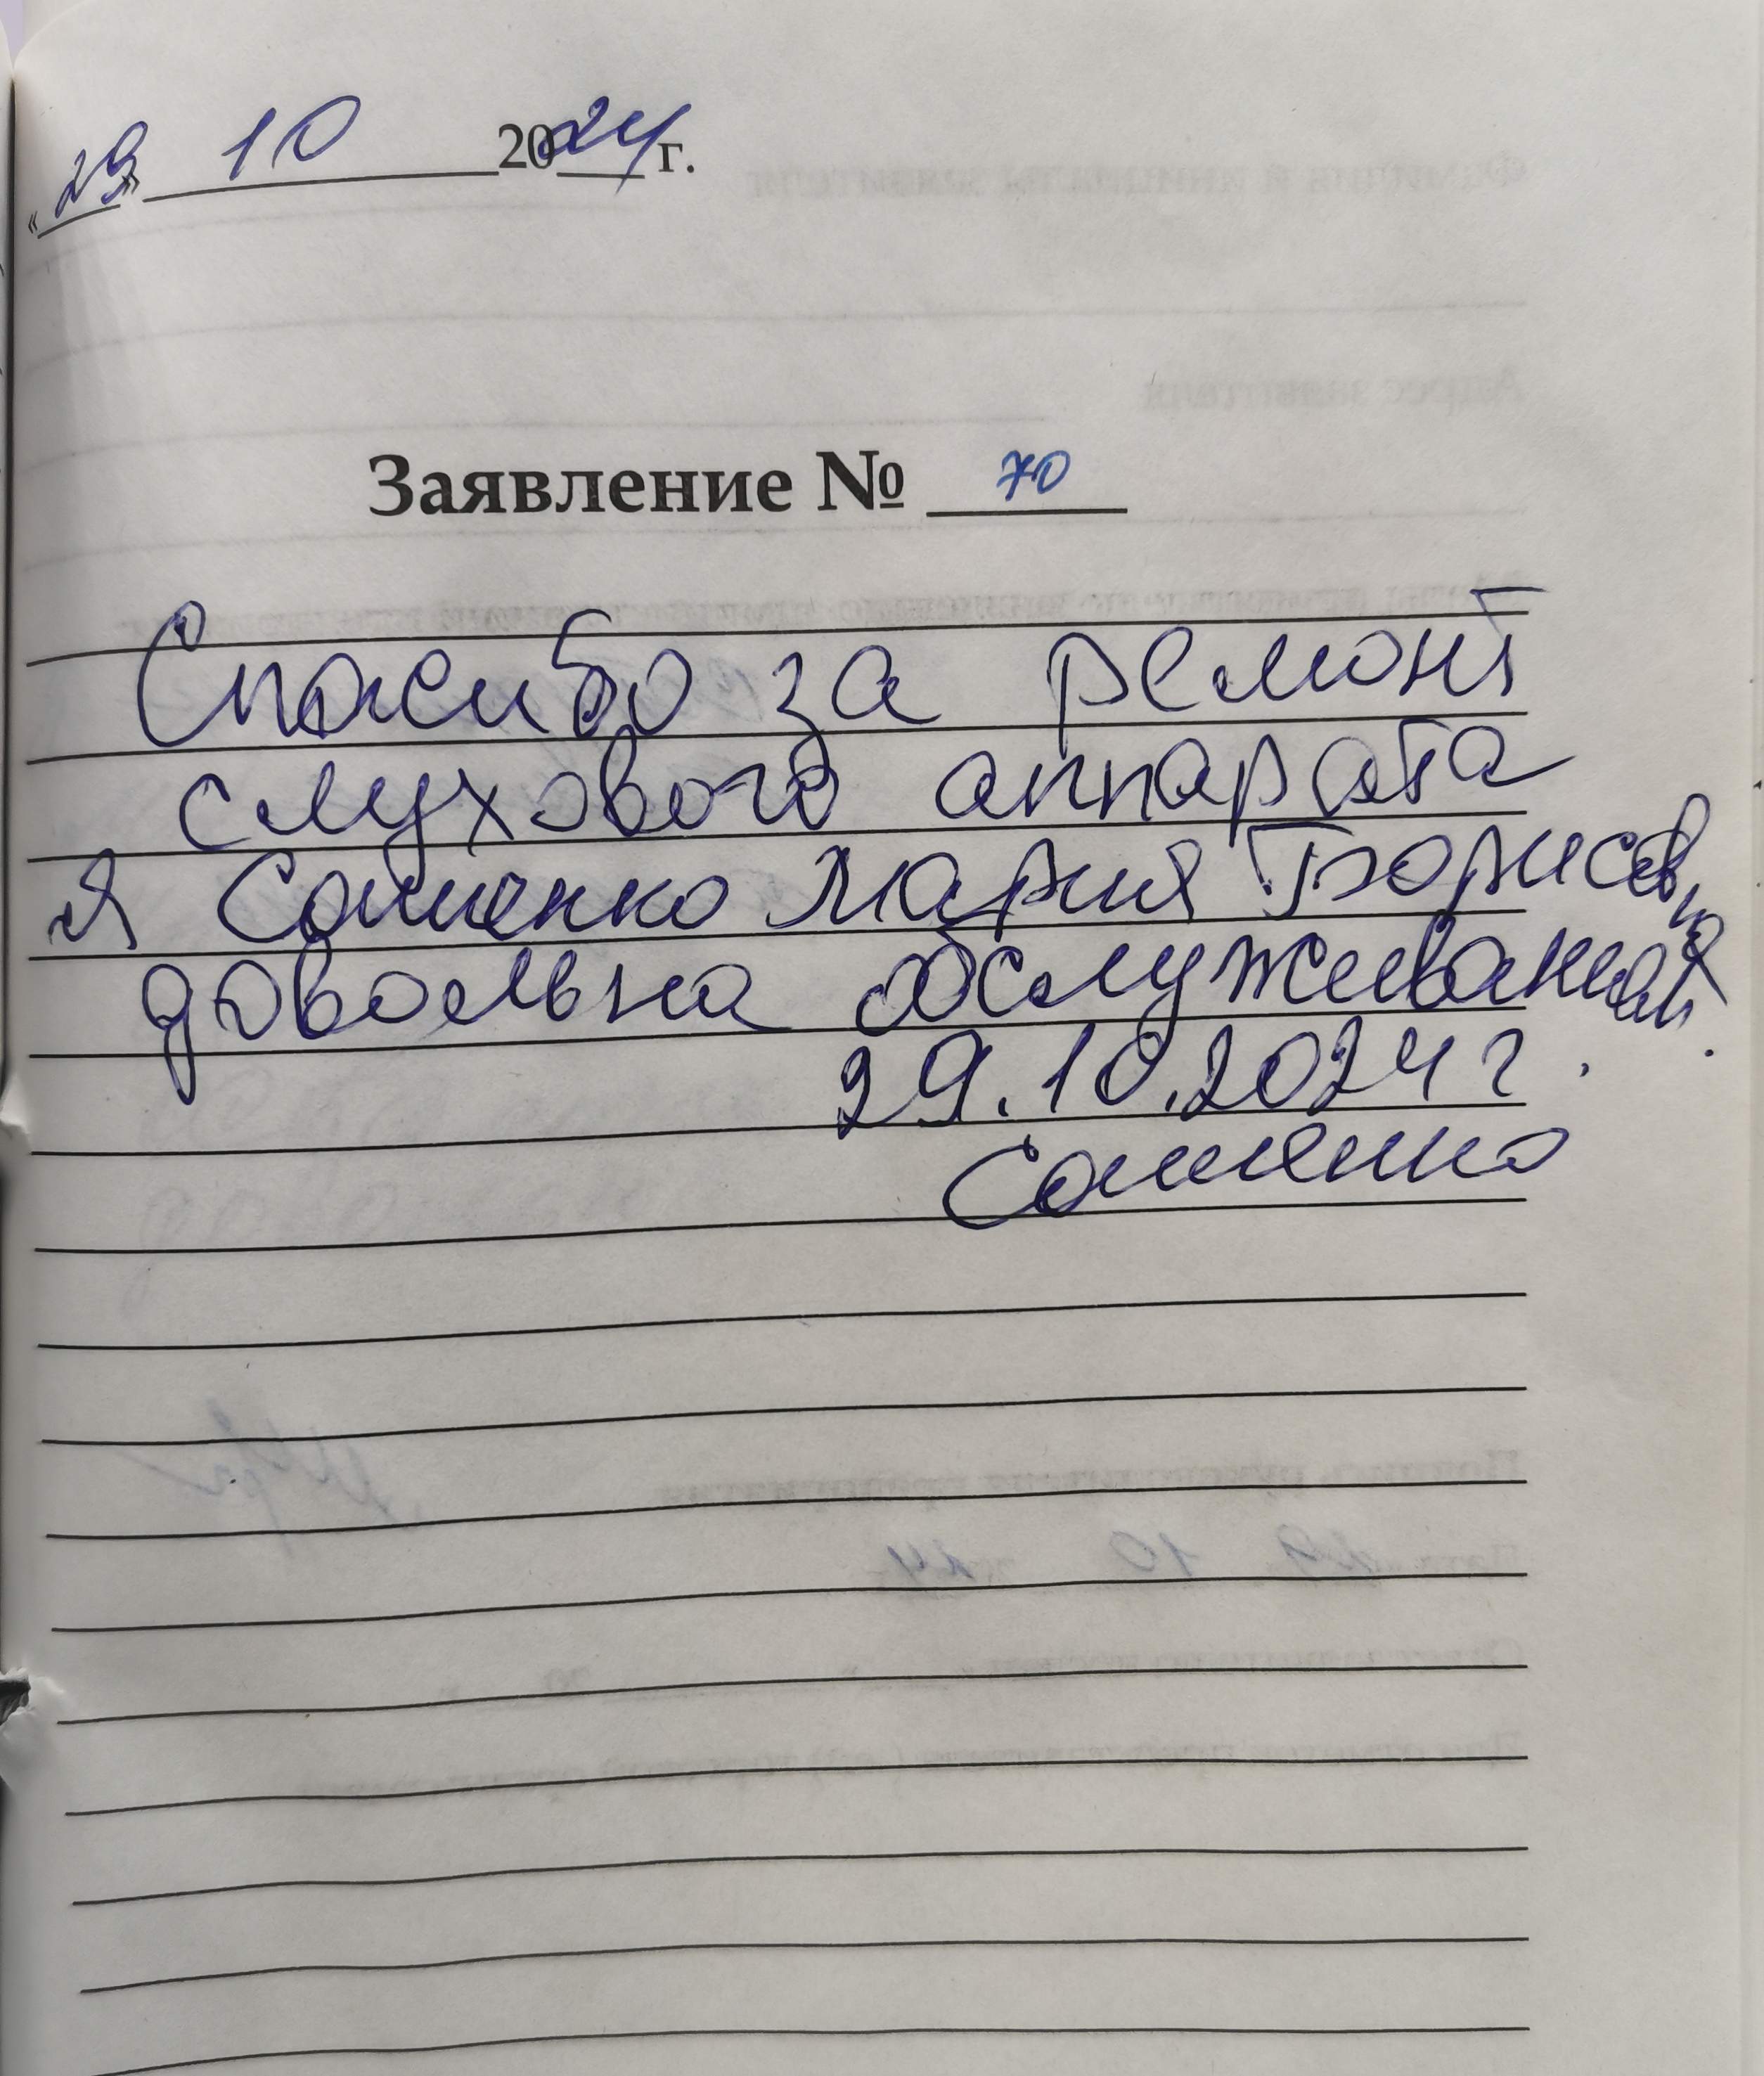 «29» 10 2024 г.
Заявление № 70
Спасибо за ремонт
слухового аппарата
я Мария Борисовна
довольна обслуживанием.
29.10.2024 г.